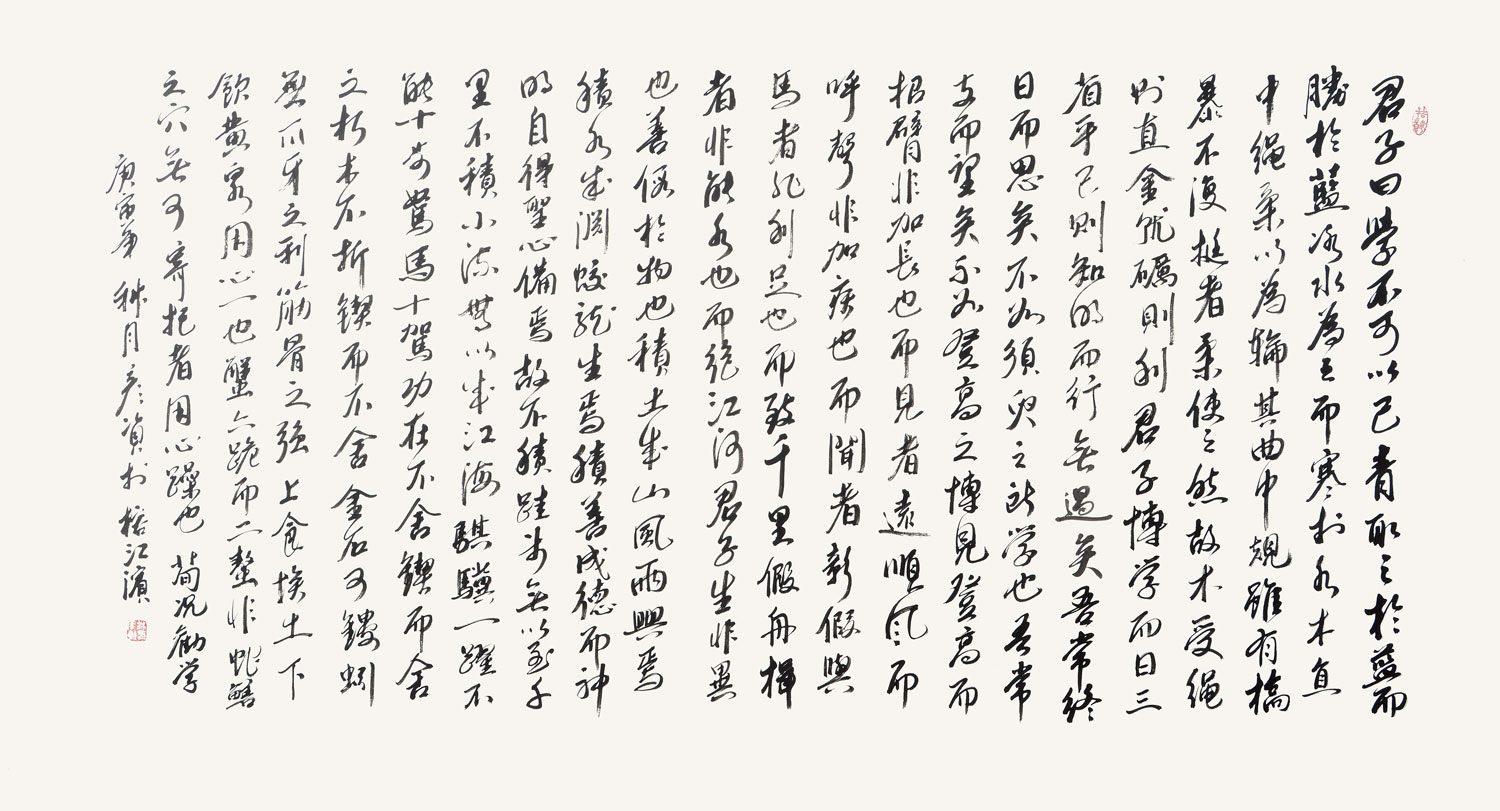 君子曰學不可以已青取之於藍而
勝於藍冰水為之而寒於水木直
中繩柔以為輪其曲中規雖有槁
暴不復挺者柔使之然故木受繩
則直金就礪則利君子博学而日三
省乎己則知明而行無過矣吾常終
日而思矣不如須臾之所学也吾常
支而望矣不如登高之博見登高而
招臂非加長也而見者遠順風而
呼聲非加疾也而聞者彰假輿
馬者非利足也而致千里假舟楫
者非能水也而絶江河君子生非異
也善假於物也積土成山風雨興焉
積水成淵蛟龍生焉積善成德而神
明自得聖心備焉故不積跬步無以至千
里不積小流無以成江海騏驥一躍不
能十步駑馬十駕功在不舍鍥而舍
之朽木不折鍥而不舍金石可鏤蚓
無爪牙之利筋骨之強上食埃土下
飲黃泉用心一也蟹六跪而二螯非蛇鱔
之穴無可寄托者用心躁也 荀况勸学
庚寅 秋月彦 於榕江濱